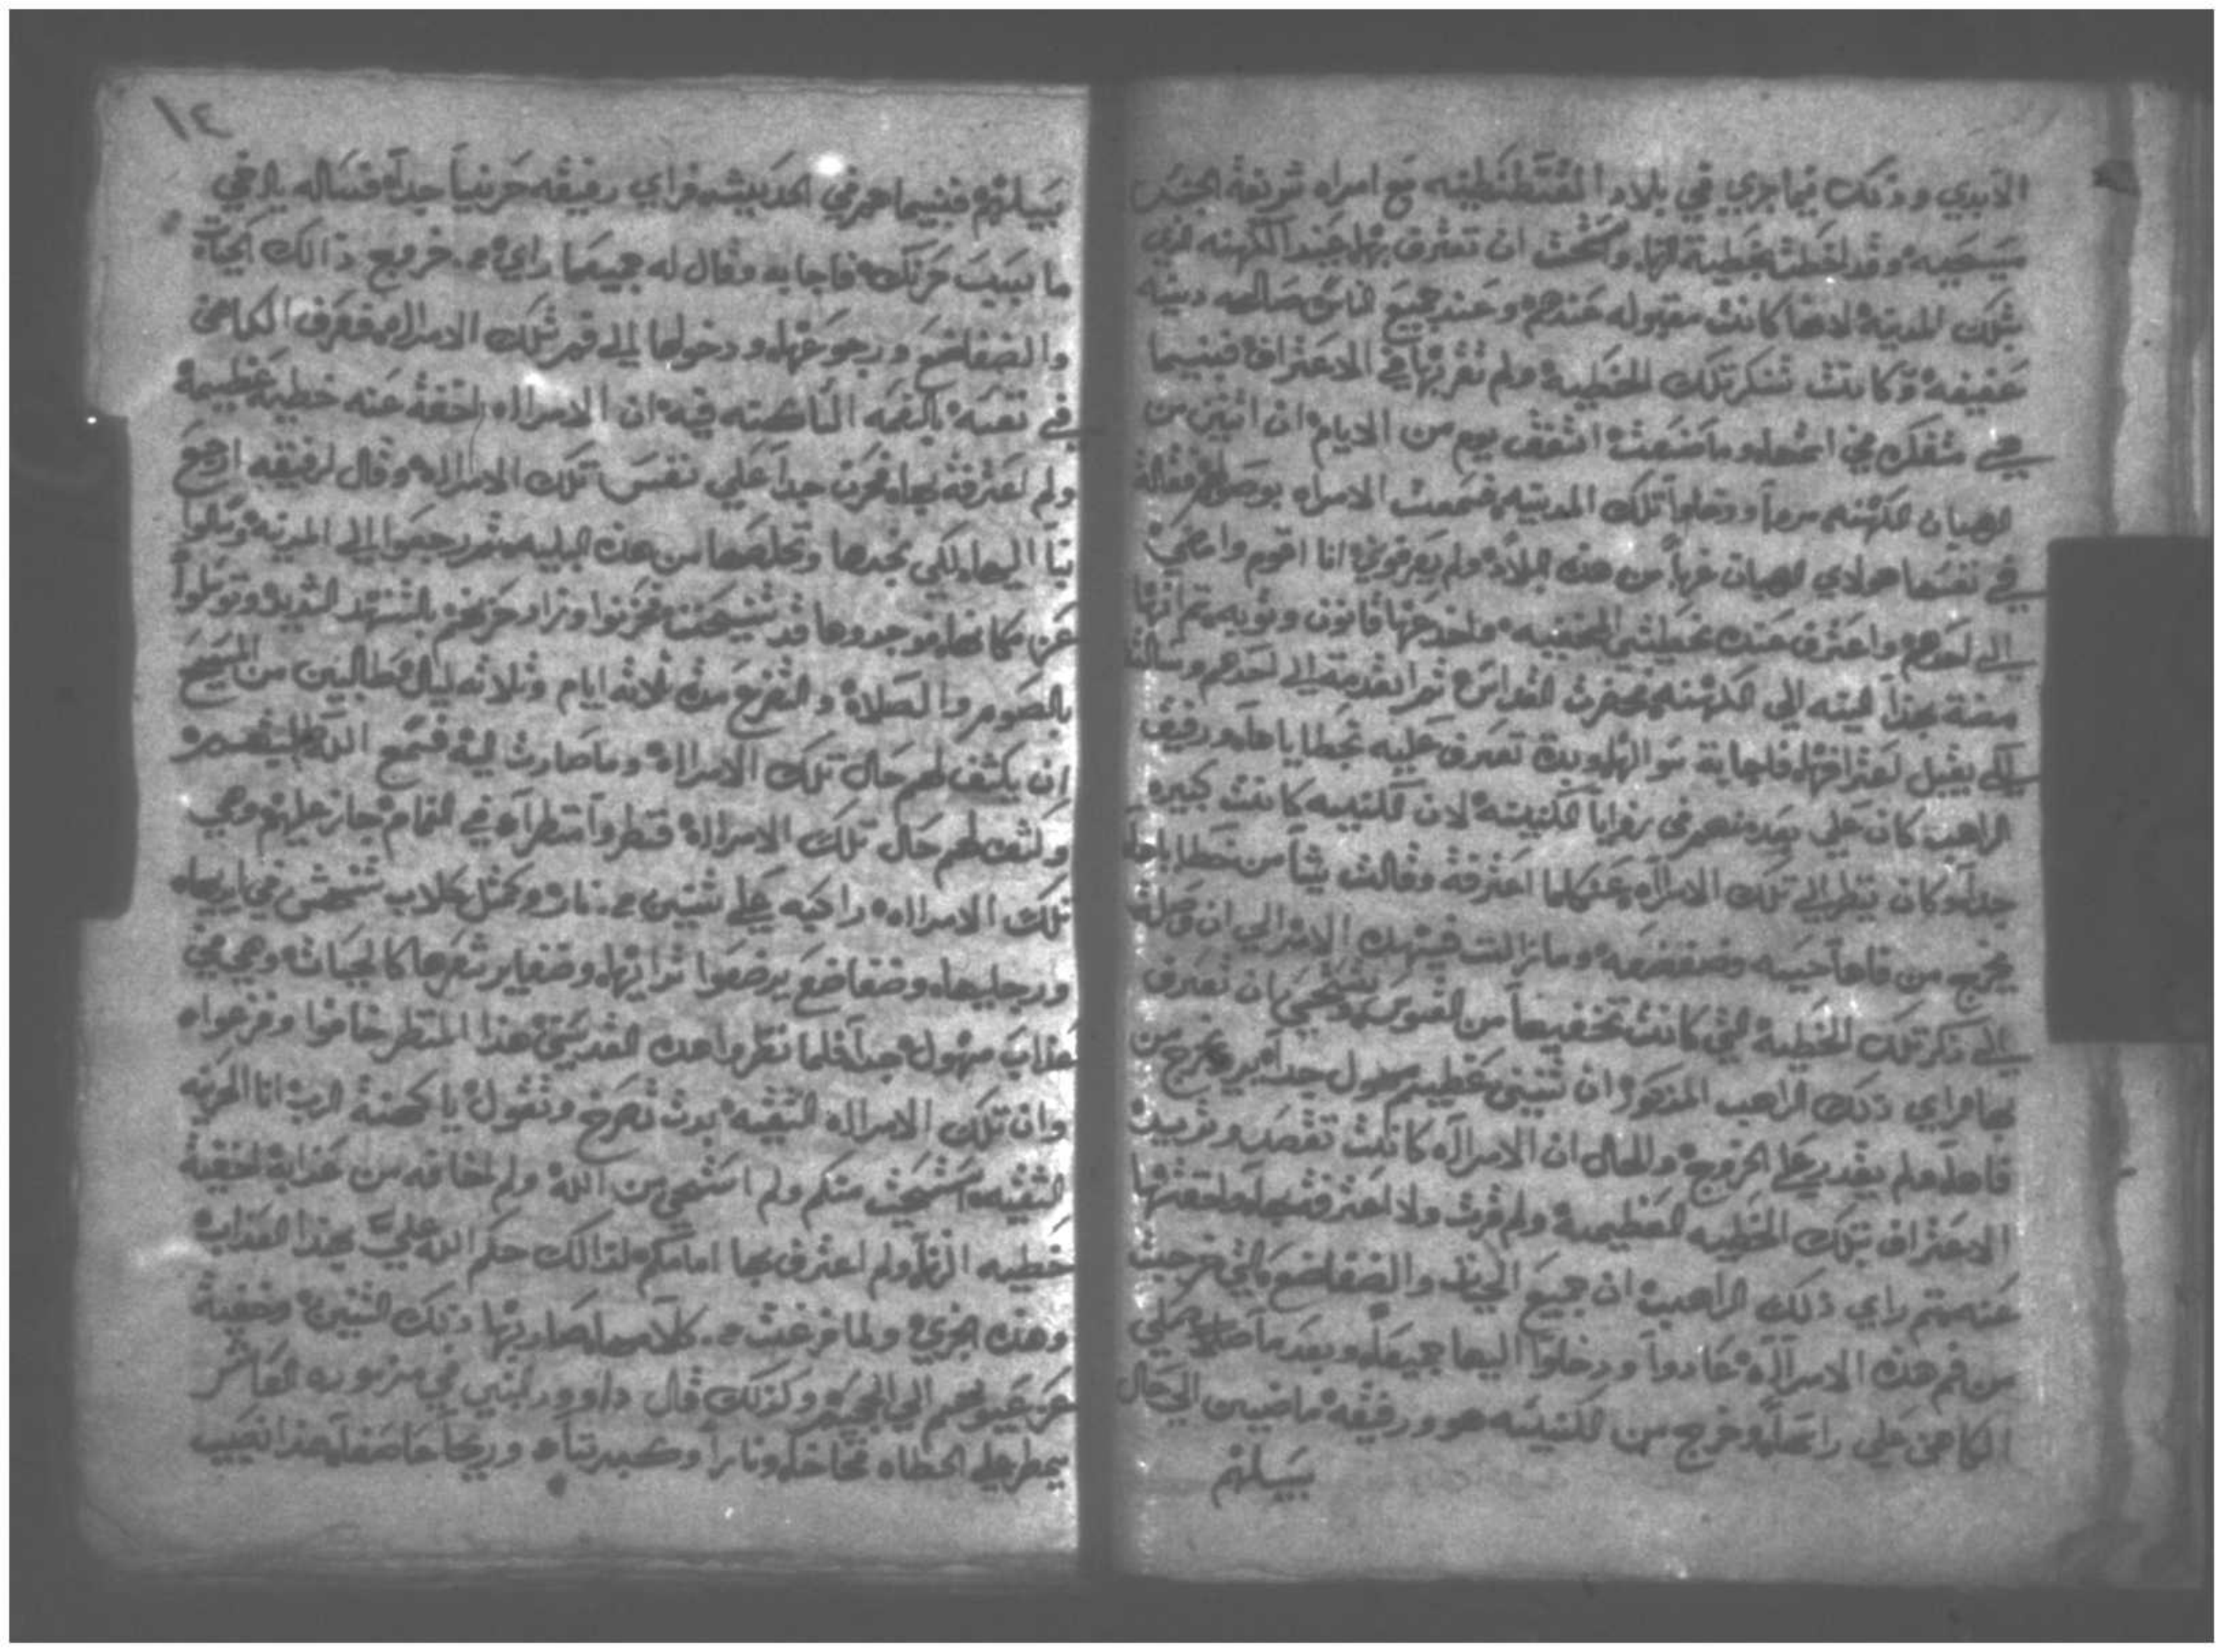 الابدي وذلك فيما جري في بلاد القسطنطينيه مع امراه شريفة الجنس
مسيحيه وقد اخطت بخطية الزنا واستحت ان تعترف بها عند الكهنه الذي
بتلك المدينه لانها كانت مقبوله عندهم وعند جميع الناس صالحه دينه
عفيفه وكانت تنكر تلك الخطية ولم تقر بها في الاعتراف فبينما
هي متفكره في اثمها وما صنعت اتفق يوم من الايام ان اثنين من
الرهبان الكهنه مروا ودخلوا تلك المدينه فسمعت الامراه بوصولهم فقالة
في نفسها هولاي الرهبان غربا من هذه البلاد ولم يعرفوني انا اقوم وامضي
الي احدهم واعترف عنده بخطيتي المخفيه واخذ منه قانون وتوبه ثم انها
مضة الي الكهنه وحضرت القداس ثم تقدمت الي احدهم وسالته
لكي يقبل اعترافها فاجابة سوالها وبدة تعترف عليه بخطاياها ورفيق
الراهب كان علي بعد منهم في زوايا الكنيسه لان الكنيسه كانت كبيره
جدا وكان ينظر الي تلك الامراه عندما كلما اعترفة وقالت شيا من خطاياها
يخرج من فاها حيه وضفضعه وما زالت الي ان وصلت
الي ذكر تلك الخطية التي كانت تخفيها من القسوس وتستحي ان تعترف
بها فراي ذلك الراهب المذكور ان تنين عظيم مهول جدا يريد يخرج من
فاها ولم يقدر علي الخروج والحال ان الامراه كانت تقصد وتريد
الاعتراف بتلك الخطيه العظيمة ولم قرت ولا اعترفت بها واخفتها
عنه ثم راي ذلك الراهب ان جميع الحيات والضفاضع التي خرجت
من فم هذه الامراه عادوا ودخلوا اليها جميعا وبعد ما صلي
الكاهن علي راسها وخرج من الكنيسه هو ورفيقه ماضيين الي حال
سبيلهم
سبيلهم فبينما هم في الحديث فراي رفيقه حزينا جدا فساله يا اخي
ما سبب حزنك فاجابه وقال له جميع ما راي من خروج ذالك الحيات
والضفاضع ورجوعها ودخولها الي فم تلك الامراه فعرف الكاهن
في نفسه بالنعمه الساكنه فيه ان الامراه اخفة عنه خطية عظيمة
ولم اعترفة بها فحزن جدا علي نفس تلك الامراه وقال لرفيقه ارجع
بنا اليها لكي نجدها ونخلصها من هذه البليه ثم رجعوا الي المدينه وسالوا
عن مكانها فوجدوها قد تنيحت فحزنوا وزاد حزنهم بالتنهد الشديد وتوسلوا
بالصوم والصلاة والتضرع مدة ثلاثه ايام وثلاثه ليال طالبين من المسيح
ان يكشف لهم حال تلك الامراة وما صارت ليه فسمع الله
وكشف لهم حال تلك الامراة فنظروا منظرا في المنام جاز عليهم وهي
تلك الامراه راكبه علي تنين من نار وكمثل كلاب تنهش في ايديها
ورجليها وضفاضع يرضعوا ثدايها وضفاير شعرها كالحيات وهي في
عذاب مهول جدا فلما نظروا هذه القديسين هذا المنظر خافوا وفزعوا
وان تلك الامراه الشقيه بدت تصرخ وتقول يا كهنة الرب انا الحزينه
الشقيه استحيت منكم ولم استحي من الله ولم اخافه من عذابه اخفيت
خطيه الزنا ولم اعترف بها امامكم لذالك حكم الله علي بهذا العذاب
وهذه الخزي ولما فرغت من كلامها صار بها ذلك التنين وخفية
عن عيونهم الي الجحيم وكذلك قال داوود النبي في مزموره العاشر
يمطر علي الخطاه فخاخا ونارا وكبريتا وريحا عاصفا هذا نصيب
١٤